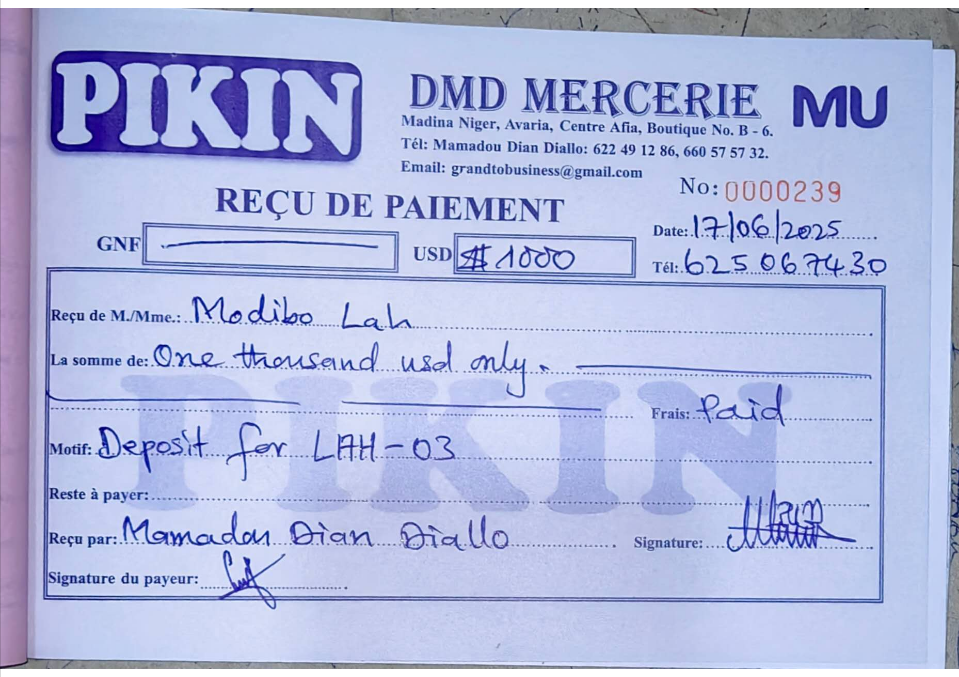 PIKIN
DMD MERCERIE MU
Madina Niger, Avaria, Centre Afia, Boutique No. B - 6.
Tél: Mamadou Dian Diallo: 622 49 12 86, 660 57 57 32.
Email: grandtobusiness@gmail.com
No: 0000239
REÇU DE PAIEMENT
Date: 17/06/2025
GNF USD $ 1000
Tél: 625 06 74 30
Reçu de M./Mme.: Modibo Lah
La somme de: One thousand usd only.
Frais: Paid
PIKIN
Motif: Deposit for LAH-03
Reste à payer:
Reçu par: Mamadou Dian Diallo Signature:
Signature du payeur: